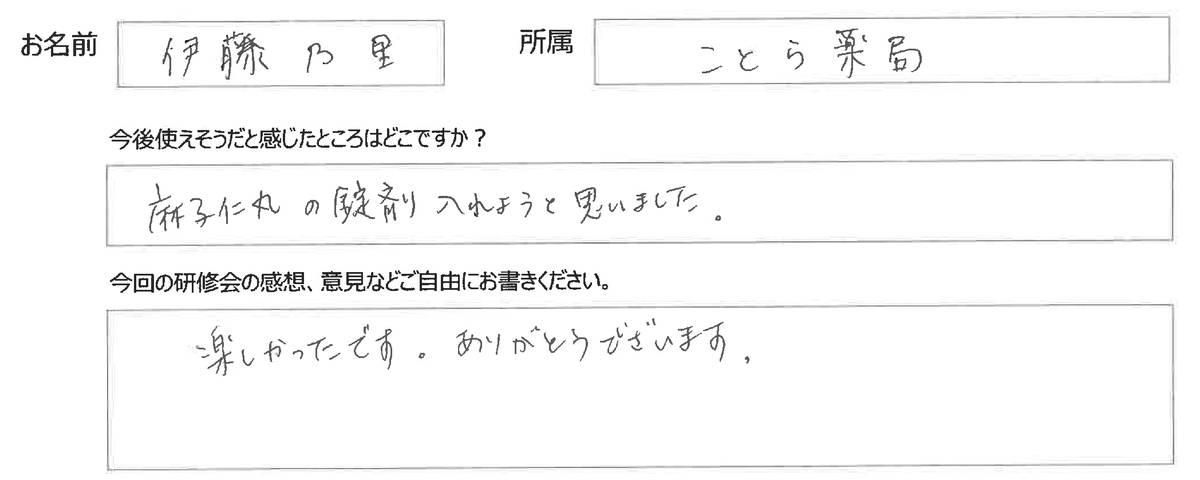 お名前 伊藤乃里 所属 ことら薬局
今後使えそうだと感じたところはどこですか？
麻子仁丸の錠剤入れようと思いました。
今回の研修会の感想、意見などご自由にお書きください。
楽しかったです。ありがとうございます。